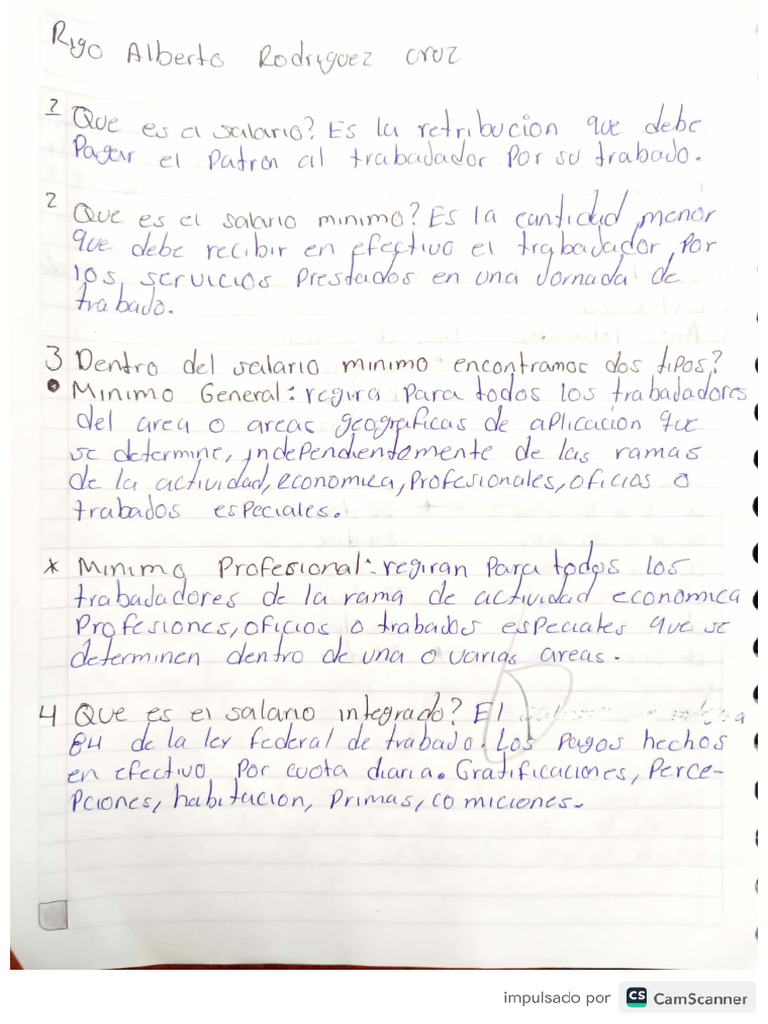 Rigo Alberto Rodriguez cruz
1 Que es el salario? Es la retribucion que debe
Pagar el Patron al trabajador Por su trabado.
2 Que es el salario minimo? Es la cantidad menor
que debe recibir en efectivo el trabajador, Por
los servicios Prestados en una Jornada de
trabado.
3 Dentro del salario minimo encontramos dos tipos?
• Minimo General: regira Para todos los trabadadores
del area o areas geograficas de aplicacion que
se determine, independientemente de las ramas
de la actividad, economica, Profesionales, oficios o
trabados especiales.
* Minimo Profesional: regiran Para todos los
trabadadores de la rama de actividad economica
Profesiones, oficios o trabados especiales que se
determinen dentro de una o varias areas.
4 Que es el salario integrado? El
84 de la ley federal de trabado. Los Pagos hechos
en efectivo Por cuota diaria. Gratificaciones, Perce-
Pciones, habitacion, Primas, comiciones.
impulsado por CS CamScanner